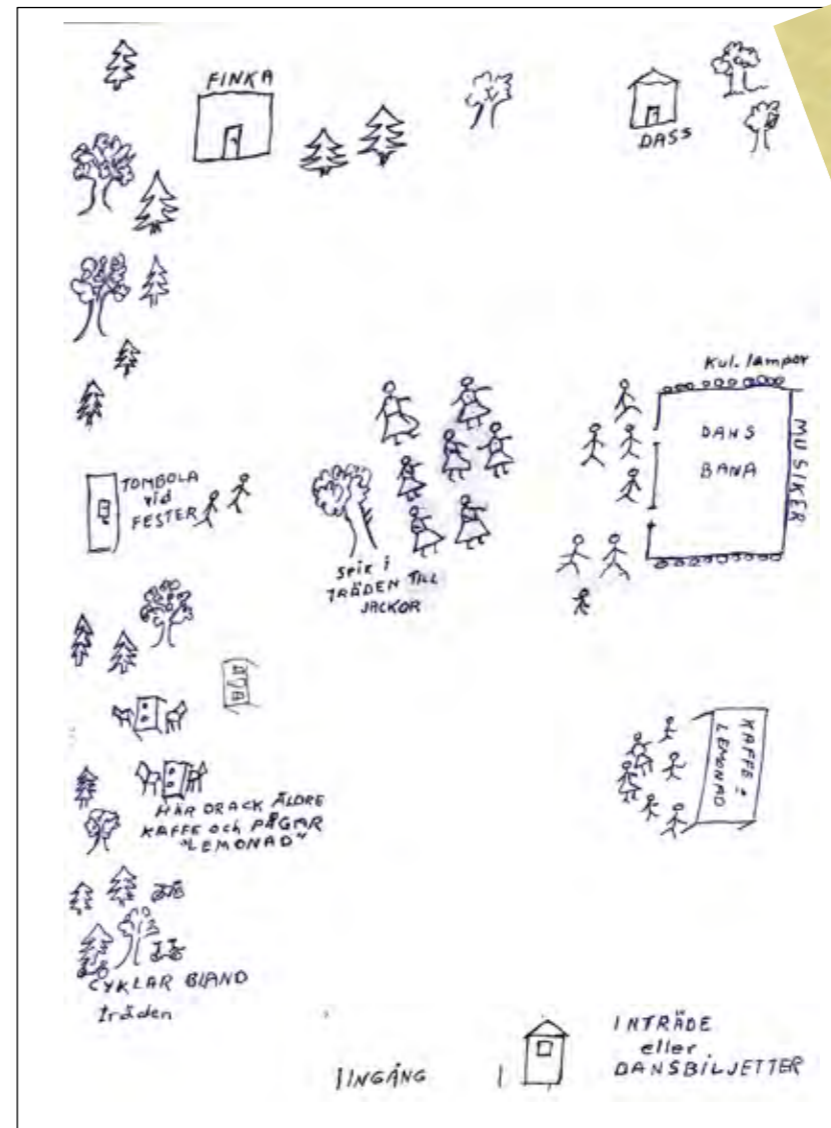 FINKA
DASS
Kul. lampor
DANS
BANA
MUSIKER
TOMBOLA
vid
FESTER
SPIK i
TRÄDEN TILL
JACKOR
KAFFE :
LEMONAD
HÄR DRACK ÄLDRE
KAFFE och PÅGAR
"LEMONAD"
CYKLAR BLAND
träden
INGÅNG
INTRÄDE
eller
DANSBILJETTER